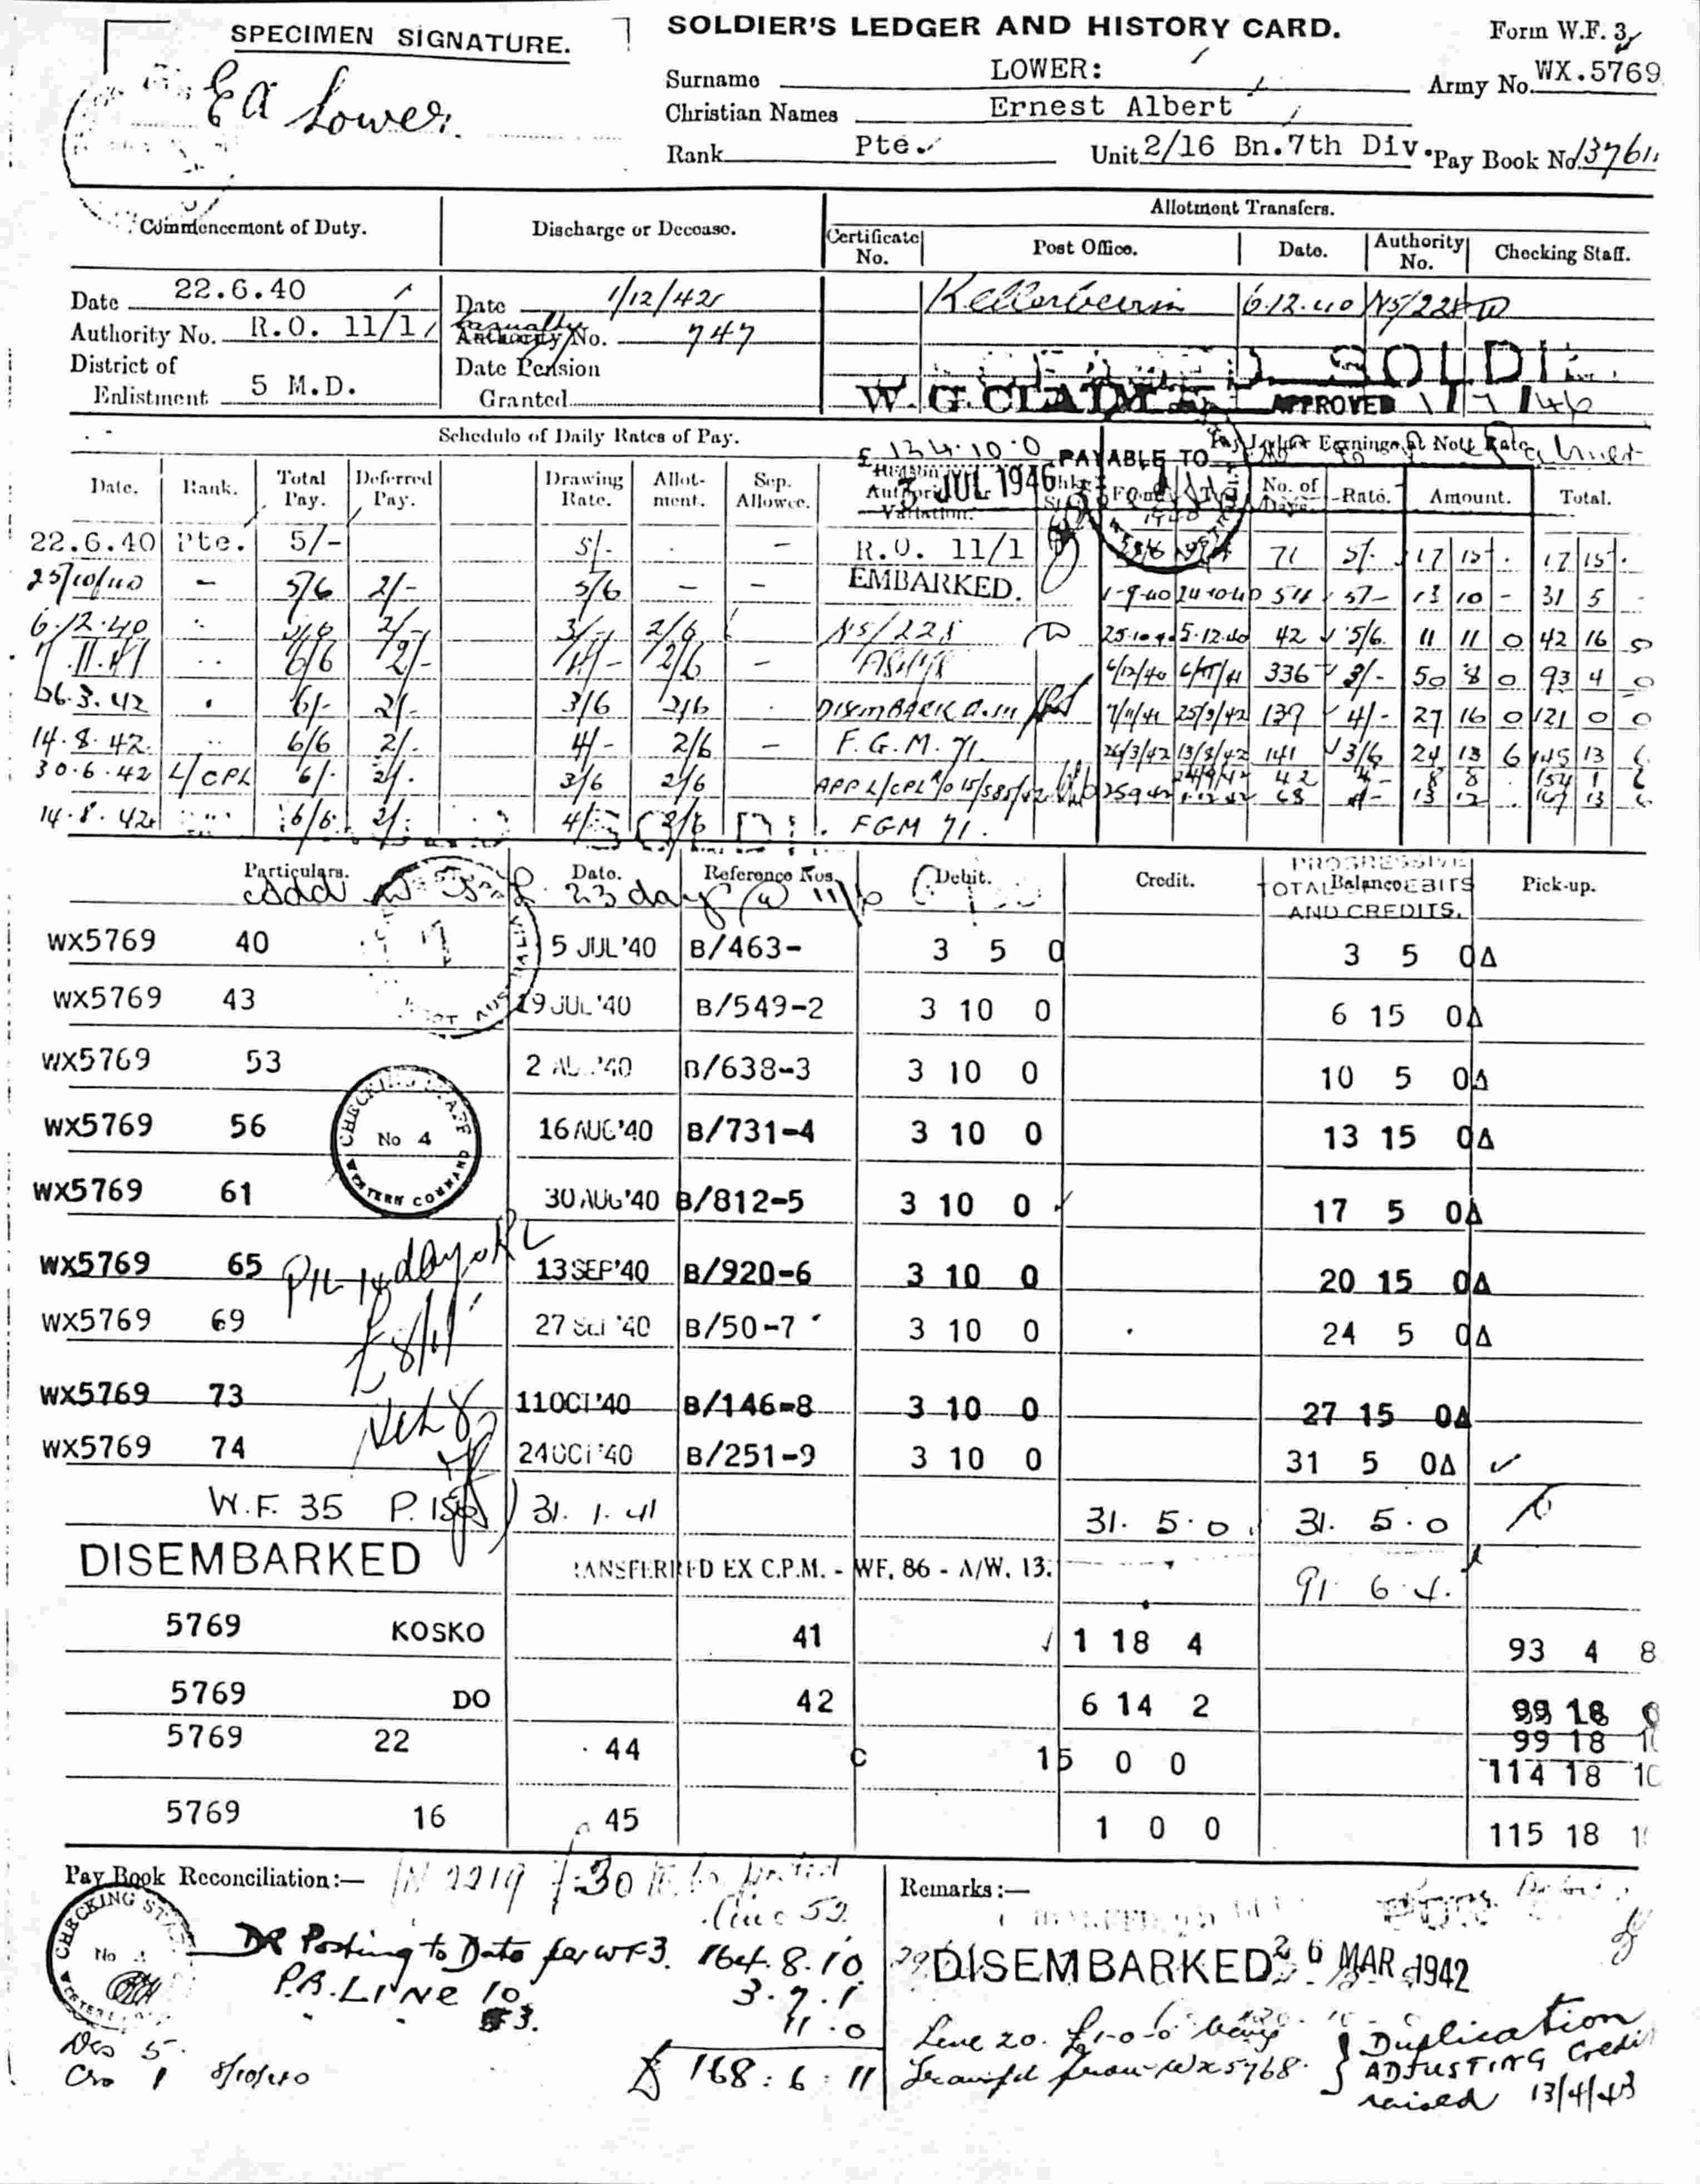 SPECIMEN SIGNATURE.
Ea Lower
SOLDIER'S LEDGER AND HISTORY CARD.
Form W.F. 3
Surname LOWER:
Army No. WX.5769
Christian Names Ernest Albert
Rank Pte. Unit 2/16 Bn.7th Div. Pay Book No 13761
Commencement of Duty.
Discharge or Decease.
Allotment Transfers.
Certificate No. Post Office. Date. Authority No. Checking Staff.
Date 22.6.40
Date 1/12/42
Kellerberrin 6.12.40 NS/228
Authority No. R.O. 11/1
Casualty Authority No. 747
District of Enlistment 5 M.D.
Date Pension Granted
SOLDIE
W.G. CLAIM APPROVED 1/7/46
Schedule of Daily Rates of Pay.
£ 134.10.0 PAYABLE TO
3 JUL 1946
Date. Rank. Total Pay. Deferred Pay. Drawing Rate. Allotment. Sep. Allowce. Variation. No. of Days. Rate. Amount. Total.
22.6.40 Pte. 5/- 5/- - R.O. 11/1 71 5/- 17 15 . 17 15 .
25/10/40 - 5/6 2/- 5/6 - - EMBARKED. 1-9-40 24-10-40 54 5/- 13 10 - 31 5 -
6.12.40 2/- 3/- 2/6 NS/228 25.10.40 5.12.40 42 5/6 11 11 0 42 16 0
7.11.41 6/6 2/- 4/- 2/6 - 6/12/40 6/11/41 336 3/- 50 8 0 93 4 0
26.3.42 6/- 2/- 3/6 2/6 DISEMBARK 7/11/41 25/3/42 139 4/- 27 16 0 121 0 0
14.8.42 6/6 2/- 4/- 2/6 - F.G.M. 71 26/3/42 13/8/42 141 3/6 24 13 6 145 13 6
30.6.42 L/CPL 6/- 2/- 3/6 2/6 APP L/CPL R/O 15/585/42 42 4/- 8 8 154 1 6
25 9 42 1.12.42 68 4/- 13 12 . 167 13 6
14.8.42 6/6 2/- 4/- 2/6 FGM 71.
Particulars. Date. Reference Nos. Debit. Credit. PROGRESSIVE TOTAL Balance DEBITS AND CREDITS. Pick-up.
Add 23 days @ 11/6
WX5769 40 5 JUL'40 B/463- 3 5 0 3 5 0Δ
WX5769 43 19 JUL'40 B/549-2 3 10 0 6 15 0Δ
WX5769 53 2 AU '40 B/638-3 3 10 0 10 5 0Δ
CHECKING STAFF No 4 WESTERN COMMAND
WX5769 56 16 AUG'40 B/731-4 3 10 0 13 15 0Δ
WX5769 61 30 AUG'40 B/812-5 3 10 0 17 5 0Δ
WX5769 65 13 SEP'40 B/920-6 3 10 0 20 15 0Δ
WX5769 69 27 SEP '40 B/50-7 3 10 0 24 5 0Δ
WX5769 73 11 OCT'40 B/146-8 3 10 0 27 15 0Δ
WX5769 74 24 OCT'40 B/251-9 3 10 0 31 5 0Δ
W.F. 35 31.1.41 31.5.0 31.5.0
DISEMBARKED
TRANSFERRED EX C.P.M. - WF. 86 - A/W. 13. 91.6.4.
5769 KOSKO 41 1 18 4 93 4 8
5769 DO 42 6 14 2 99 18
5769 22 44 C 15 0 0 99 18 10
114 18 10
5769 16 45 1 0 0 115 18
Pay Book Reconciliation:—
Remarks:—
DR Posting to Date per WF3. 164.8.10
P.B. LINE 10 3.7.1
11.0
£ 168:6:11
Drs 5
Crs 1 8/10/40
DISEMBARKED 26 MAR 1942
Line 20. £1-0-0 being
from WX5768.
Duplication
ADJUSTING Credit
raised 13/4/43